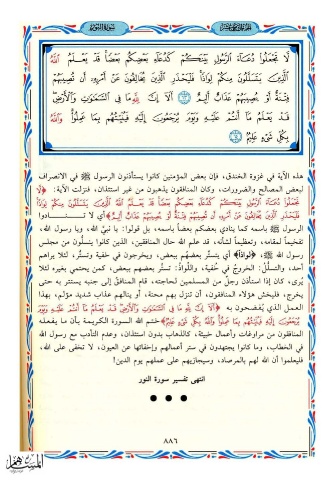 لَّا تَجْعَلُوا۟ دُعَآءَ ٱلرَّسُولِ بَيْنَكُمْ كَدُعَآءِ بَعْضِكُم بَعْضًا ۚ قَدْ يَعْلَمُ ٱللَّهُ
ٱلَّذِينَ يَتَسَلَّلُونَ مِنكُمْ لِوَاذًا ۚ فَلْيَحْذَرِ ٱلَّذِينَ يُخَالِفُونَ عَنْ أَمْرِهِۦٓ أَن تُصِيبَهُمْ
فِتْنَةٌ أَوْ يُصِيبَهُمْ عَذَابٌ أَلِيمٌ ٦٣ أَلَآ إِنَّ لِلَّهِ مَا فِى ٱلسَّمَٰوَٰتِ وَٱلْأَرْضِ ۖ
قَدْ يَعْلَمُ مَآ أَنتُمْ عَلَيْهِ وَيَوْمَ يُرْجَعُونَ إِلَيْهِ فَيُنَبِّئُهُم بِمَا عَمِلُوا۟ ۗ وَٱللَّهُ
بِكُلِّ شَىْءٍ عَلِيمٌۢ ٦٤
هذه الآية في غزوة الخندق، فإن بعض المؤمنين كانوا يستأذنون الرسول ﷺ في الانصراف
لبعض المصالح والضرورات، وكان المنافقون يذهبون من غير استئذان، فنزلت الآية: ﴿لَّا
تَجْعَلُوا دُعَاءَ الرَّسُولِ بَيْنَكُمْ كَدُعَاءِ بَعْضِكُم بَعْضًا قَدْ يَعْلَمُ اللَّهُ الَّذِينَ يَتَسَلَّلُونَ مِنكُمْ لِوَاذًا
فَلْيَحْذَرِ الَّذِينَ يُخَالِفُونَ عَنْ أَمْرِهِ أَن تُصِيبَهُمْ فِتْنَةٌ أَوْ يُصِيبَهُمْ عَذَابٌ أَلِيمٌ﴾ أي لا تنادوا
الرسول ﷺ باسمه كما ينادي بعضكم بعضاً باسمه، بل قولوا: يا نبيَّ الله، ويا رسول الله،
تفخيماً لمقامه، وتعظيماً لشأنه، قد علم الله حال المنافقين، الذين كانوا ينسلُّون من مجلس
رسول الله ﷺ، ﴿لِوَاذًا﴾ أي يتستَّر بعضهم ببعض، ويخرجون في خفية وتستُّر، لئلا يراهم
أحد، والتسلُّل: الخروجُ في خُفية، واللِّواذُ: تستُّر بعضهم ببعض، كمن يحتمي بغيره لئلا
يُرى، كان إذا استأذن رجلٌ من المسلمين لحاجته، قام المنافقُ إلى جنبه يستتر به حتى
يخرج، فليخش هؤلاء المنافقون، أن تنزل بهم محنة، أو ينالهم عذاب شديد مؤلم، بهذا
العمل الذي يُفضحون به ﴿أَلَا إِنَّ لِلَّهِ مَا فِي السَّمَاوَاتِ وَالْأَرْضِ قَدْ يَعْلَمُ مَا أَنتُمْ عَلَيْهِ وَيَوْمَ
يُرْجَعُونَ إِلَيْهِ فَيُنَبِّئُهُم بِمَا عَمِلُوا وَاللَّهُ بِكُلِّ شَيْءٍ عَلِيمٌ﴾ ختم الله السورة الكريمة بأن ما يفعله
المنافقون من مراوغات وأعمال خبيثة، كالذهاب بدون استئذان، وعدم التأدب مع رسول الله
في الخطاب، وما كانوا يجتهدون في ستر أعمالهم وإخفائها عن العيون، لا تخفى على الله،
فليعلموا أن الله لهم بالمرصاد، وسيجازيهم على عملهم يوم الدين!
انتهى تفسير سورة النور
٨٨٦